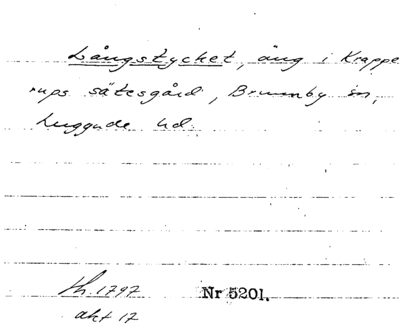 Långstycket, äng i Krappe
rups sätesgård, Brunnby sn,
Luggude hd.
th. 1797
akt 17
Nr 5201.